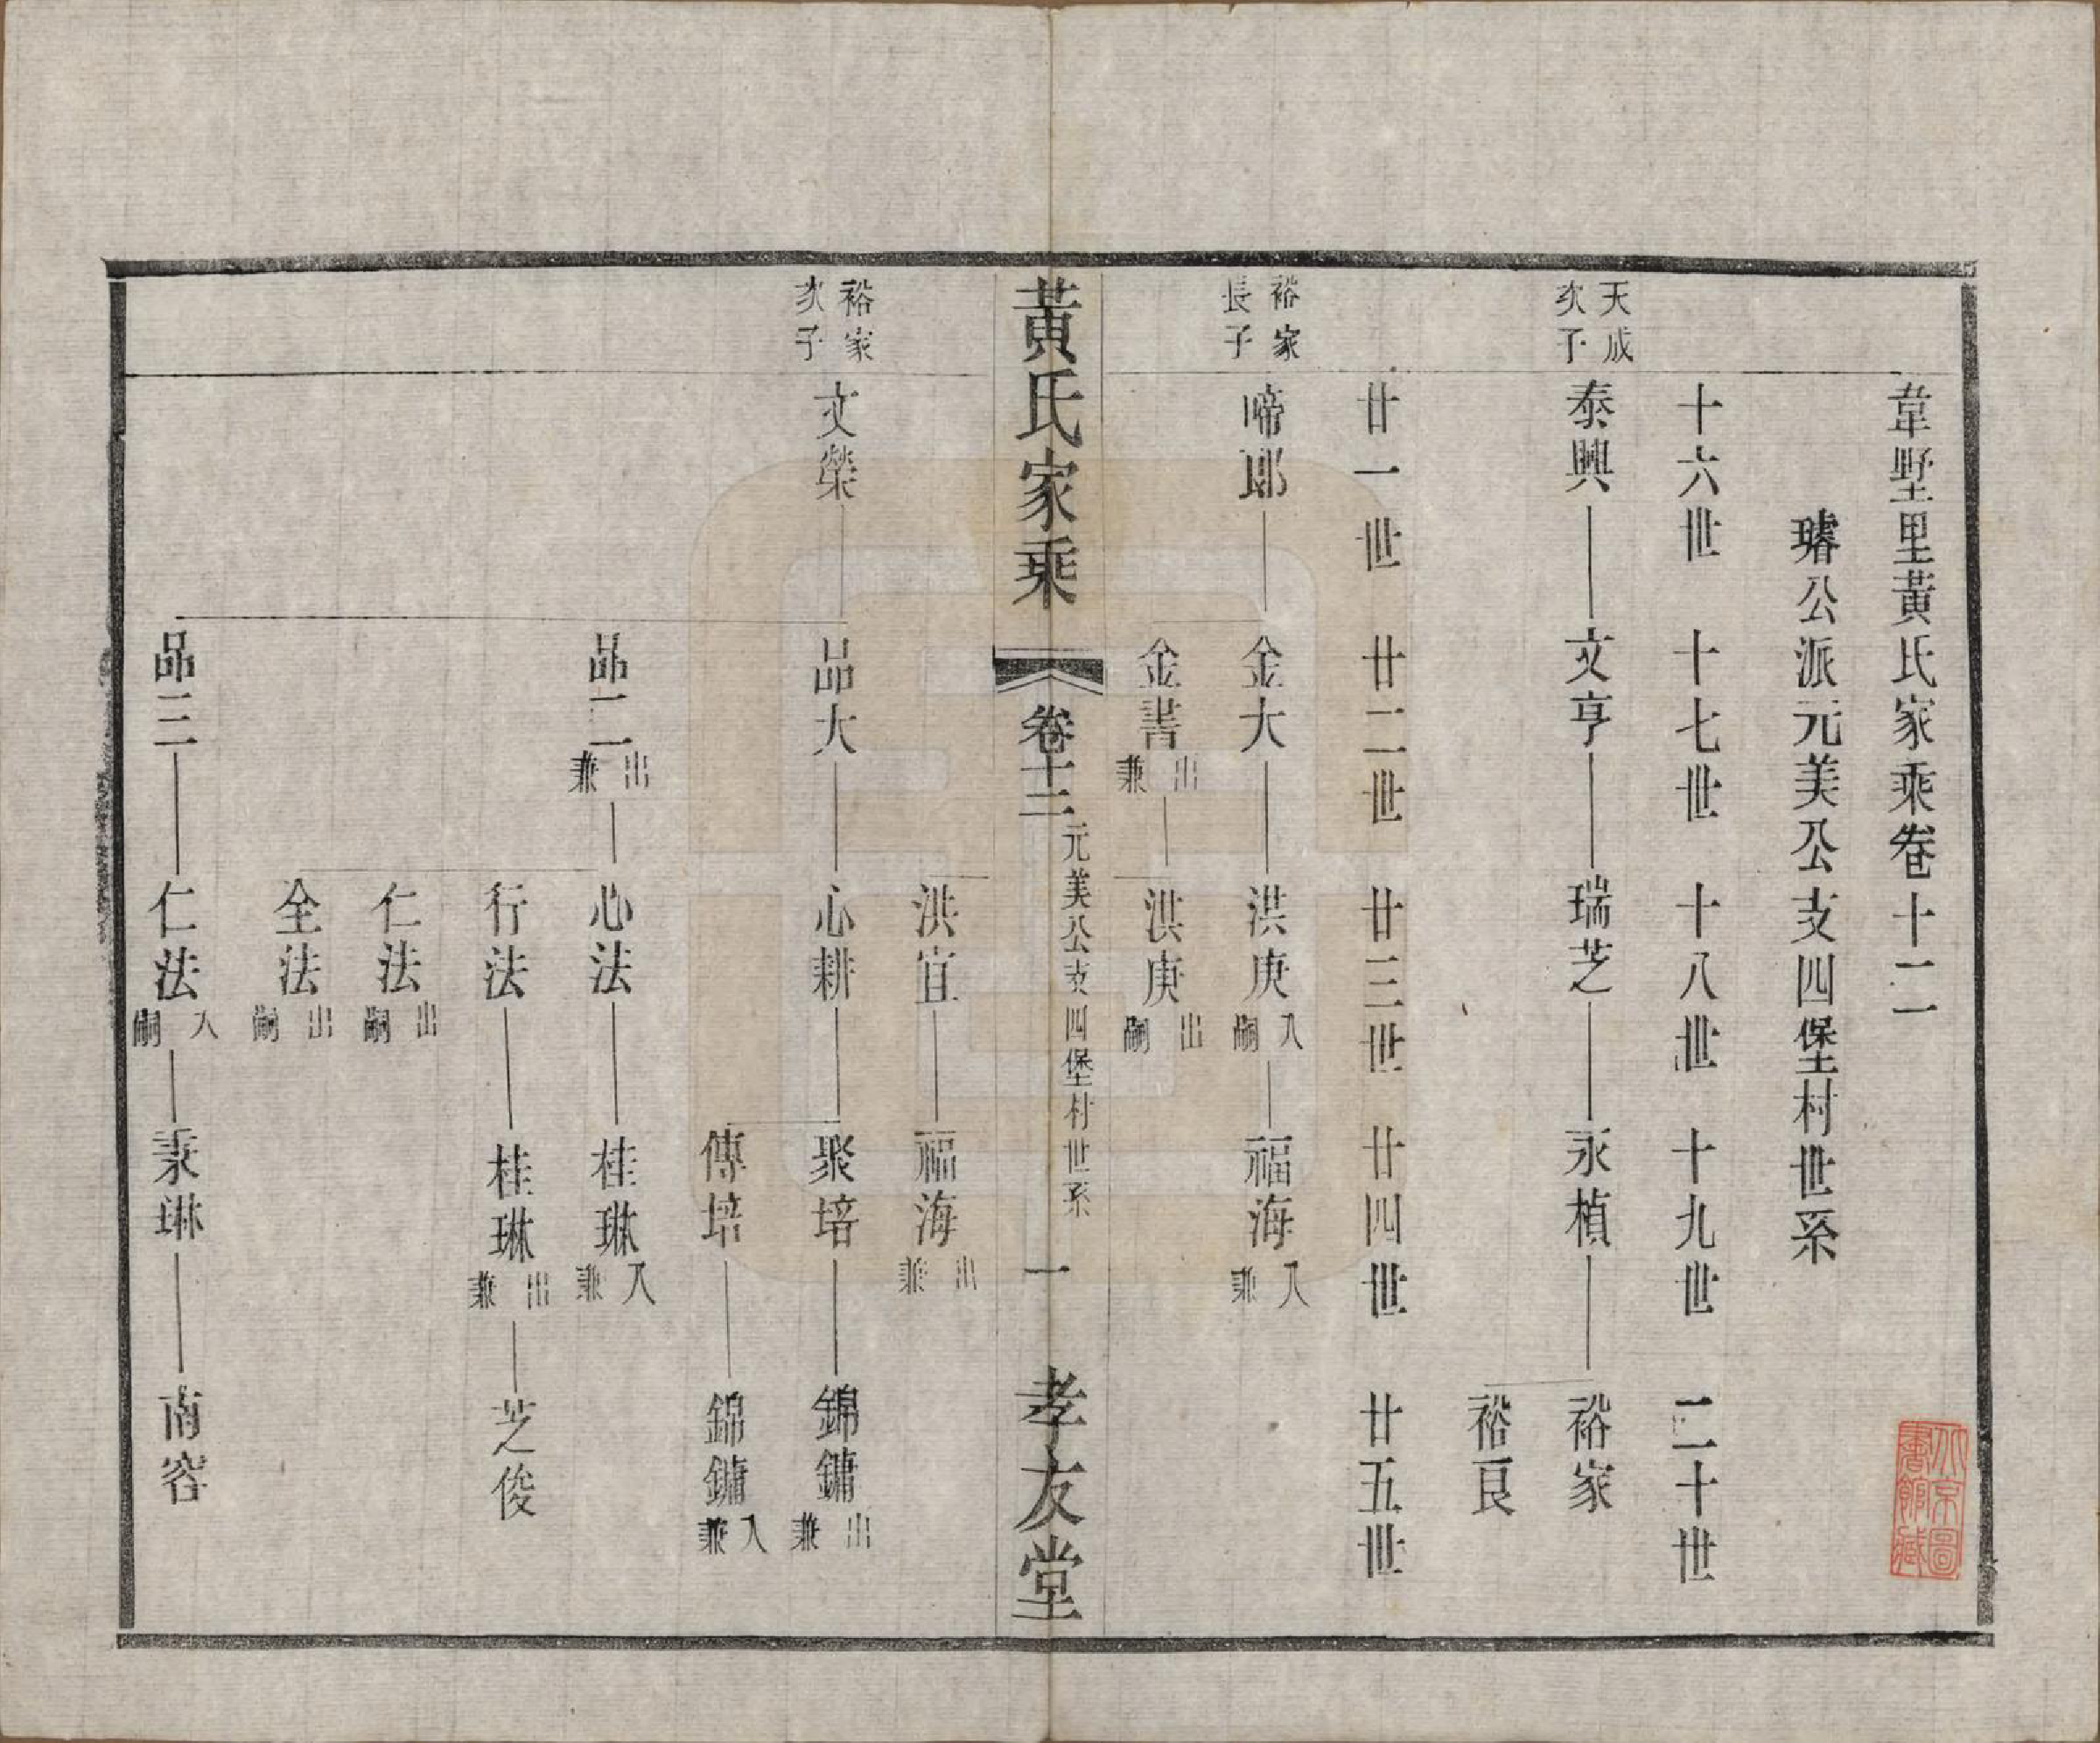 韋墅里黃氏家乘卷十二
璿公派元美公支四堡村世系
十六世 十七世 十八世 十九世 二十世
天成次子 泰興 文亨 瑞芝 永楨 裕家
裕良
廿一世 廿二世 廿三世 廿四世 廿五世
裕家長子 啼郎 金大 洪庚入嗣 福海入兼
金書出兼 洪庚出嗣
黃氏家乘 卷十二 元美公支四堡村世系 一 孝友堂
洪宜 福海出兼
裕家次子 文榮 品大 心耕 聚培 錦鏞出兼
傳培 錦鏞入兼
品二出兼 心法 桂琳入兼
行法 桂琳出兼 芝俊
仁法出嗣
全法出嗣
品三 仁法入嗣 秉琳 南容
北京圖書館藏